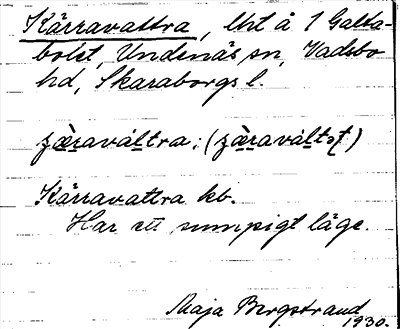 Kärravattra, lht å 1 Galta-
bolet, Undenäs sn, Vadsbo
hd, Skaraborgs l.
Kärravattra kb.
Har ett sumpigt läge.
Maja Bergstrand
1930.